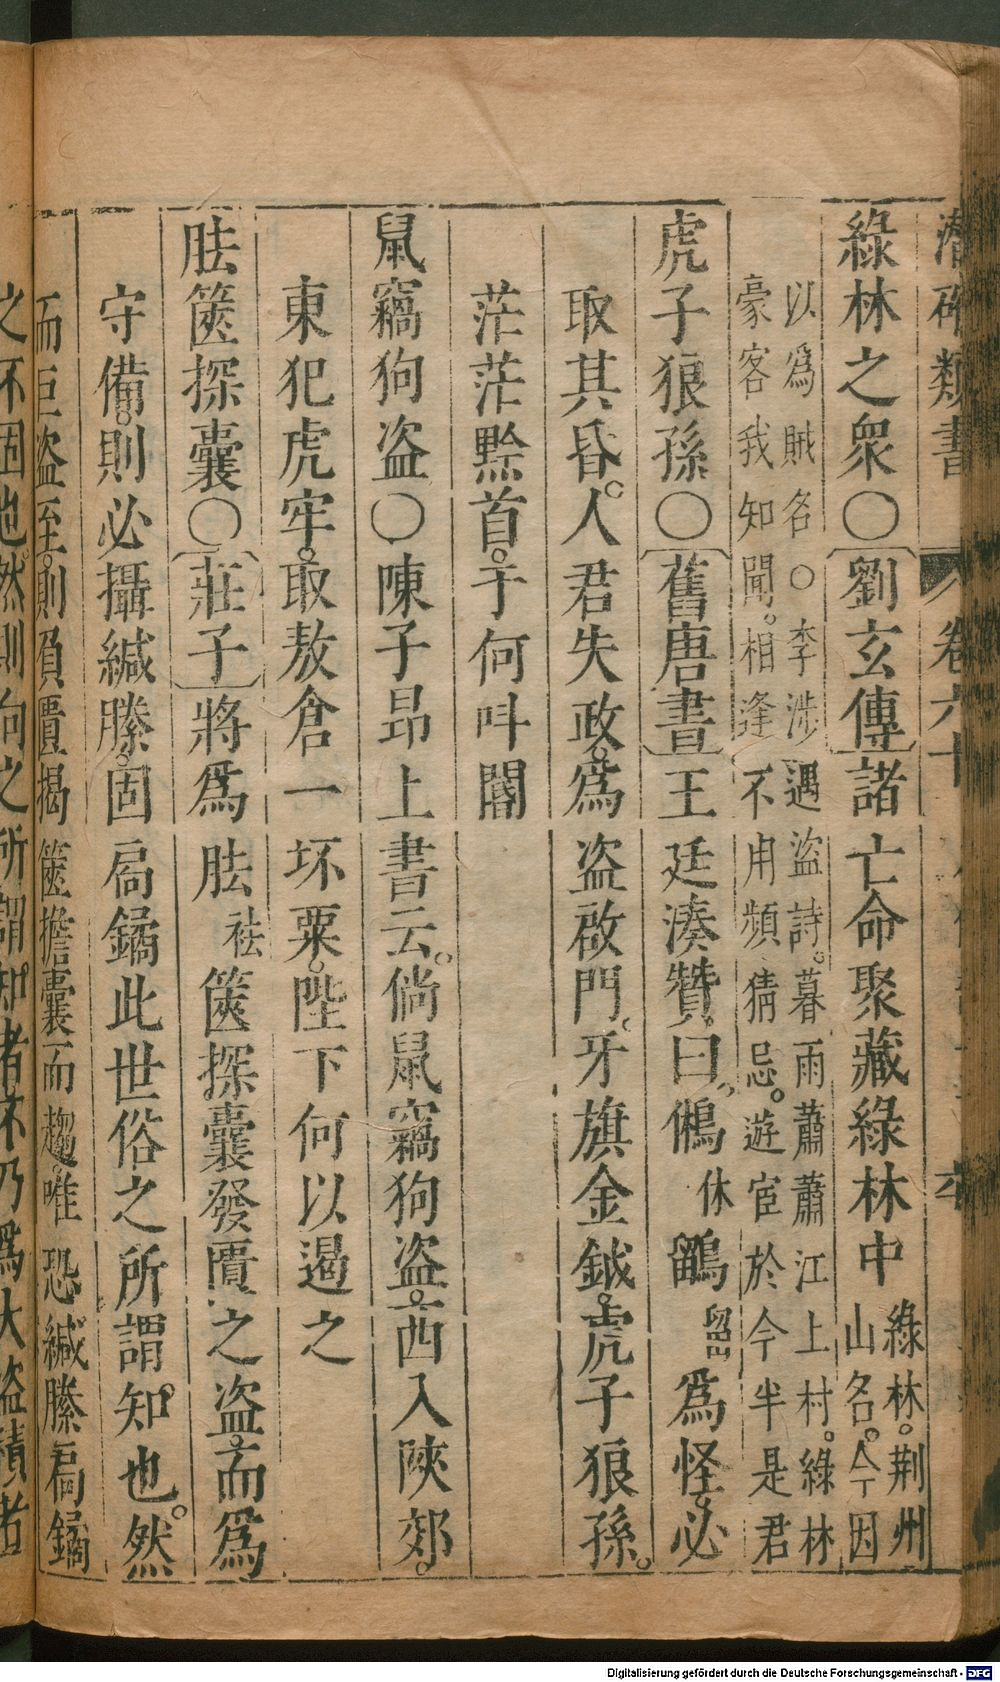 潛確類書 卷六十
綠林之衆○劉玄傳諸亡命聚藏綠林中綠林。荆州山名。今因
以爲賊名○李涉遇盜詩。暮雨蕭蕭江上村。綠林
豪客我知聞。相逢不用頻猜忌。遊宦於今半是君
虎子狼孫○舊唐書王廷湊贊曰。鵂休鶹留爲怪。必
取其昏。人君失政。爲盜啟門。牙旗金鉞。虎子狼孫。
茫茫黔首。于何叫閽
鼠竊狗盗○陳子昂上書云。倘鼠竊狗盗。西入陝郊。
東犯虎牢。取敖倉一坏粟。陛下何以遏之
胠篋探囊○莊子將爲胠祛篋探囊發匱之盗。而爲
守備。則必攝緘縢。固扃鐍此世俗之所謂知也。然
而巨盗至。則負匱揭篋擔囊而趨。唯恐緘縢扃鐍
之不固也。然則向之所謂知者。不乃爲大盗積者
Digitalisierung gefördert durch die Deutsche Forschungsgemeinschaft - DFG